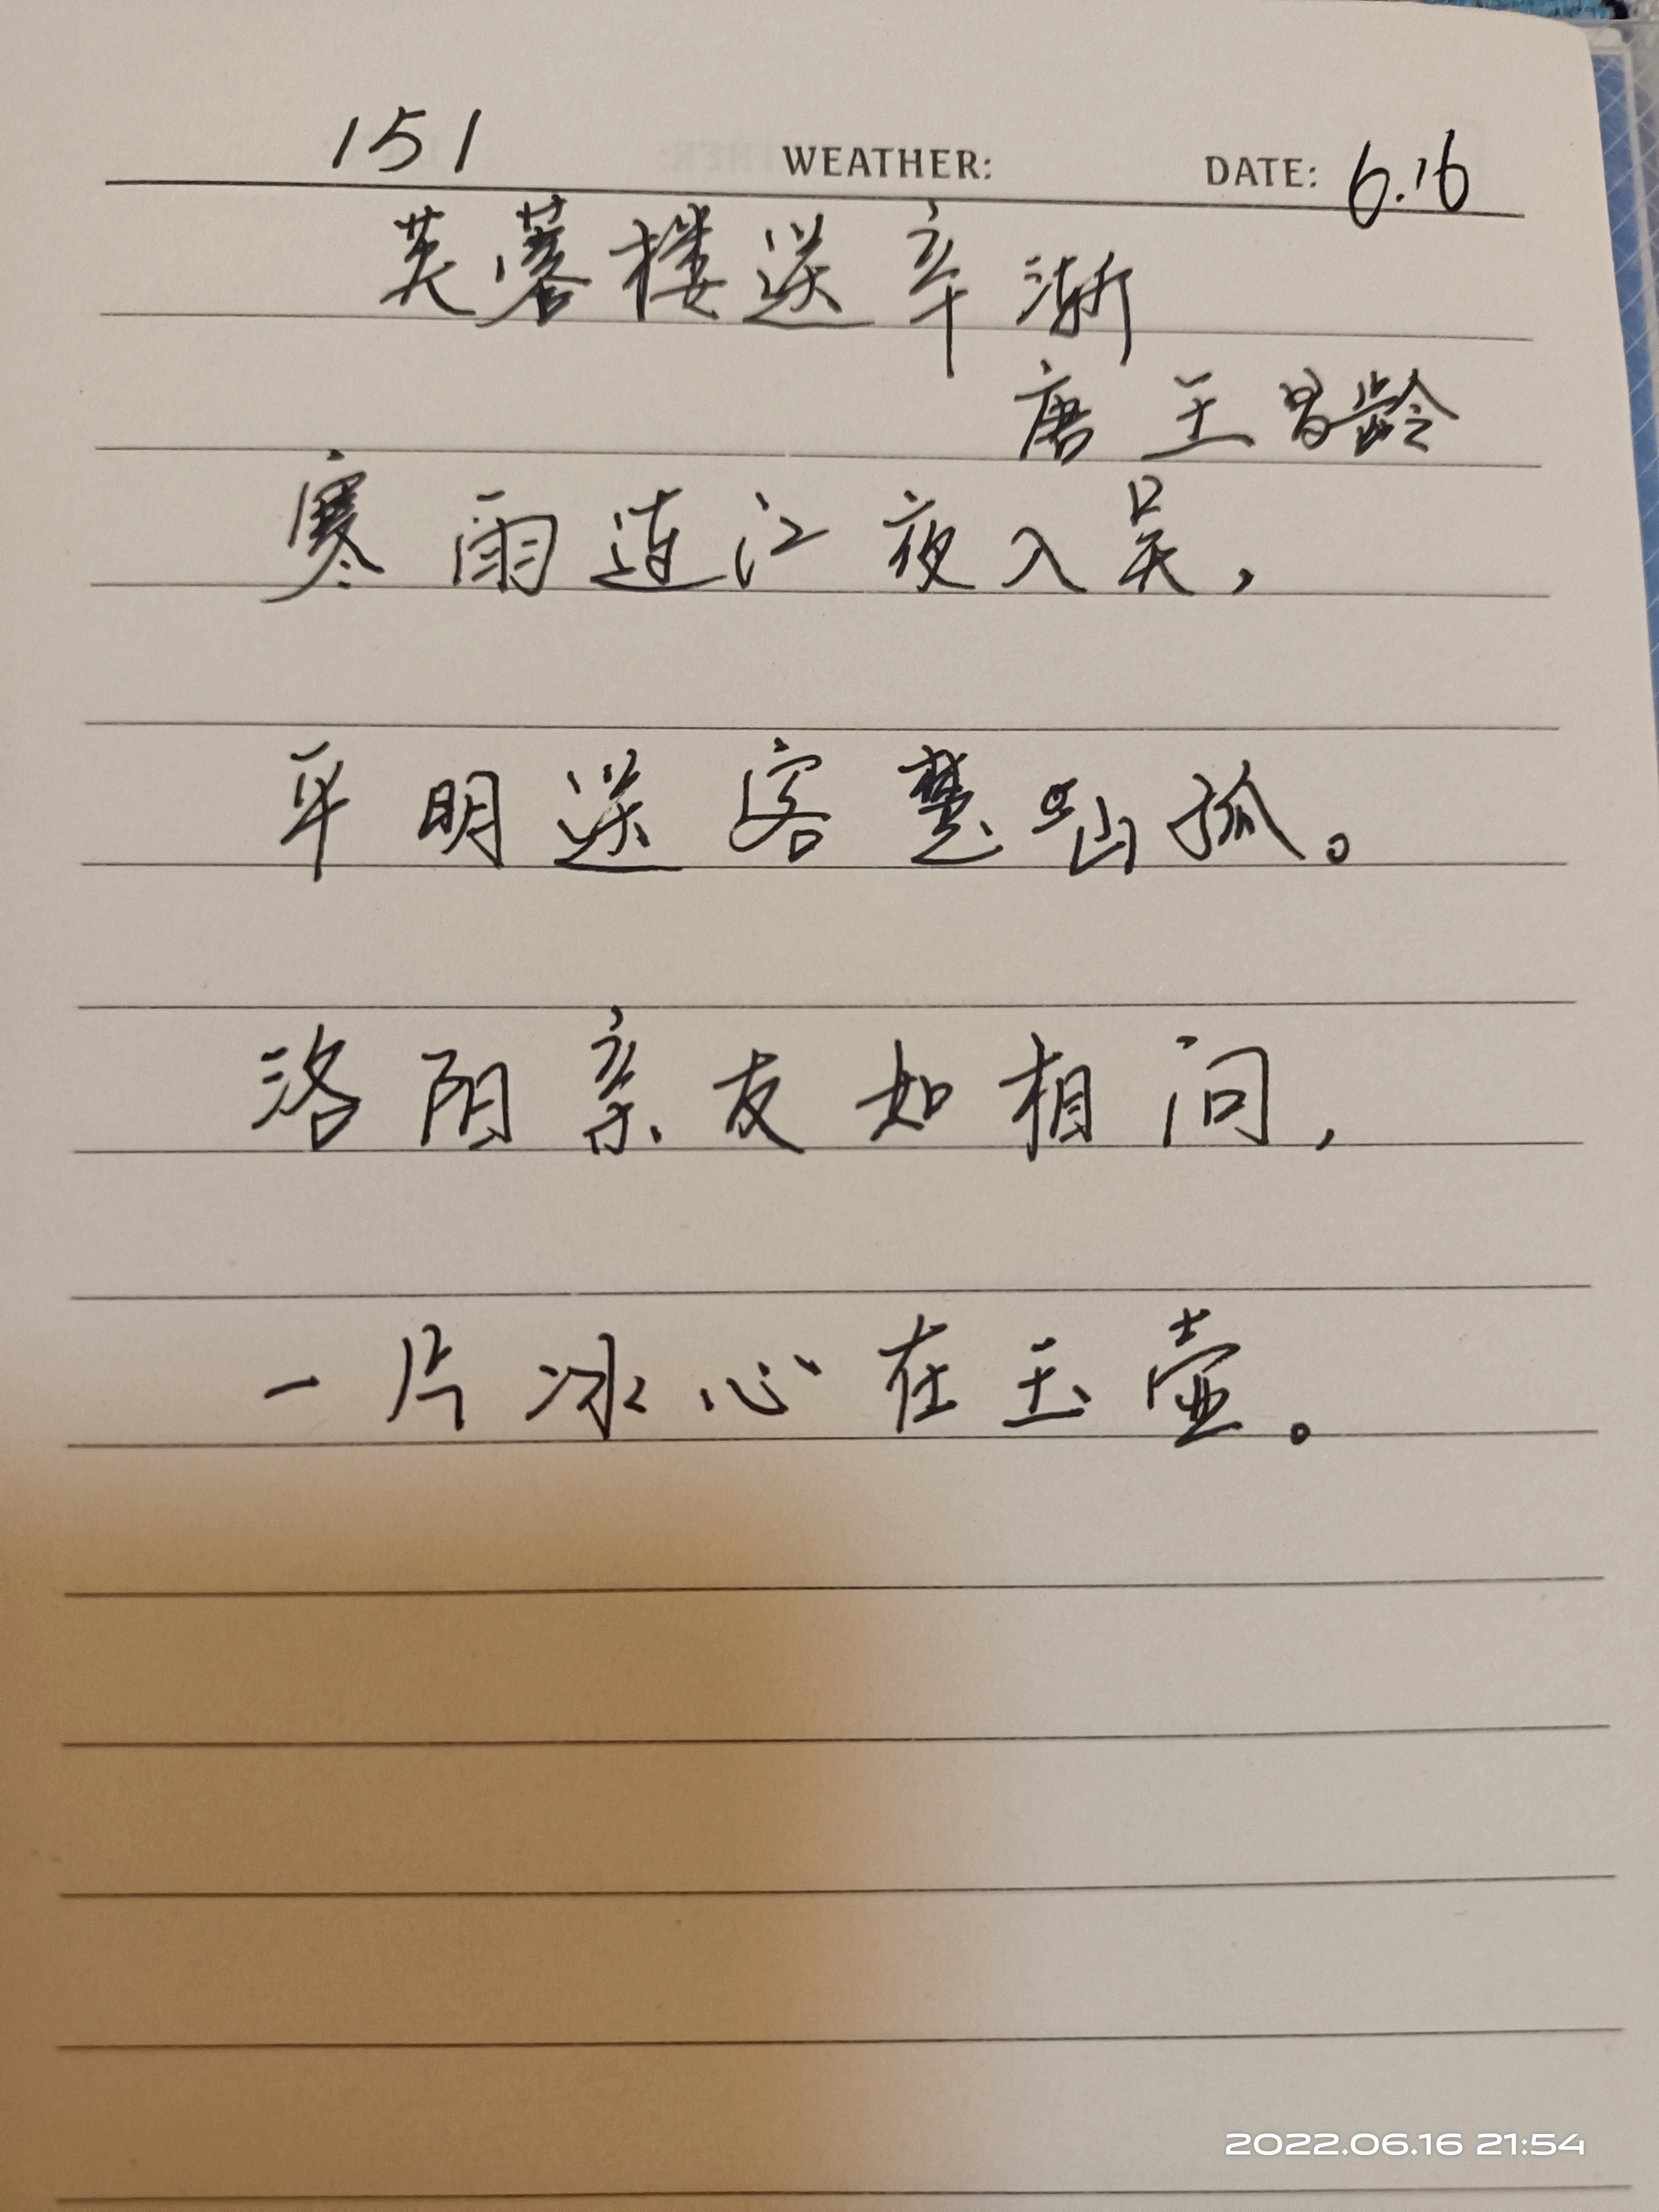 151 WEATHER: DATE: 6.16
芙蓉楼送辛渐
唐 王昌龄
寒雨连江夜入吴,
平明送客楚山孤。
洛阳亲友如相问,
一片冰心在玉壶。
2022.06.16 21:54